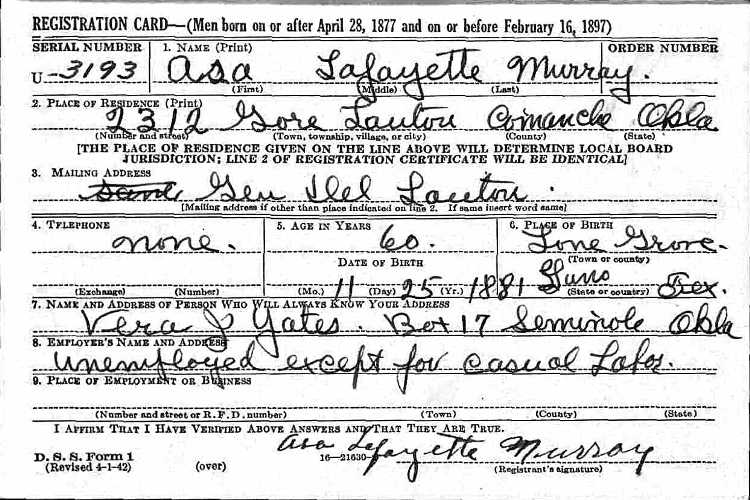 REGISTRATION CARD—(Men born on or after April 28, 1877 and on or before February 16, 1897)
SERIAL NUMBER 1. NAME (Print) ORDER NUMBER
U-3193 Asa Lafayette Murray.
(First) (Middle) (Last)
2. PLACE OF RESIDENCE (Print)
2312 Gore Lawton Comanche Okla
(Number and street) (Town, township, village, or city) (County) (State)
[THE PLACE OF RESIDENCE GIVEN ON THE LINE ABOVE WILL DETERMINE LOCAL BOARD
JURISDICTION; LINE 2 OF REGISTRATION CERTIFICATE WILL BE IDENTICAL]
3. MAILING ADDRESS
same Gen Del Lawton.
[Mailing address if other than place indicated on line 2. If same insert word same]
4. TELEPHONE 5. AGE IN YEARS 6. PLACE OF BIRTH
none. 60. Lone Grove.
(Town or county)
DATE OF BIRTH
11 25 1881 Tex.
(Exchange) (Number) (Mo.) (Day) (Yr.) (State or country)
7. NAME AND ADDRESS OF PERSON WHO WILL ALWAYS KNOW YOUR ADDRESS
Vera J Yates. Box 17 Seminole Okla
8. EMPLOYER'S NAME AND ADDRESS
unemployed except for casual Labor.
9. PLACE OF EMPLOYMENT OR BUSINESS
(Number and street or R. F. D. number) (Town) (County) (State)
I AFFIRM THAT I HAVE VERIFIED ABOVE ANSWERS AND THAT THEY ARE TRUE.
Asa Lafayette Murray
D. S. S. Form 1
(Revised 4-1-42) (over) 16—21630 (Registrant's signature)